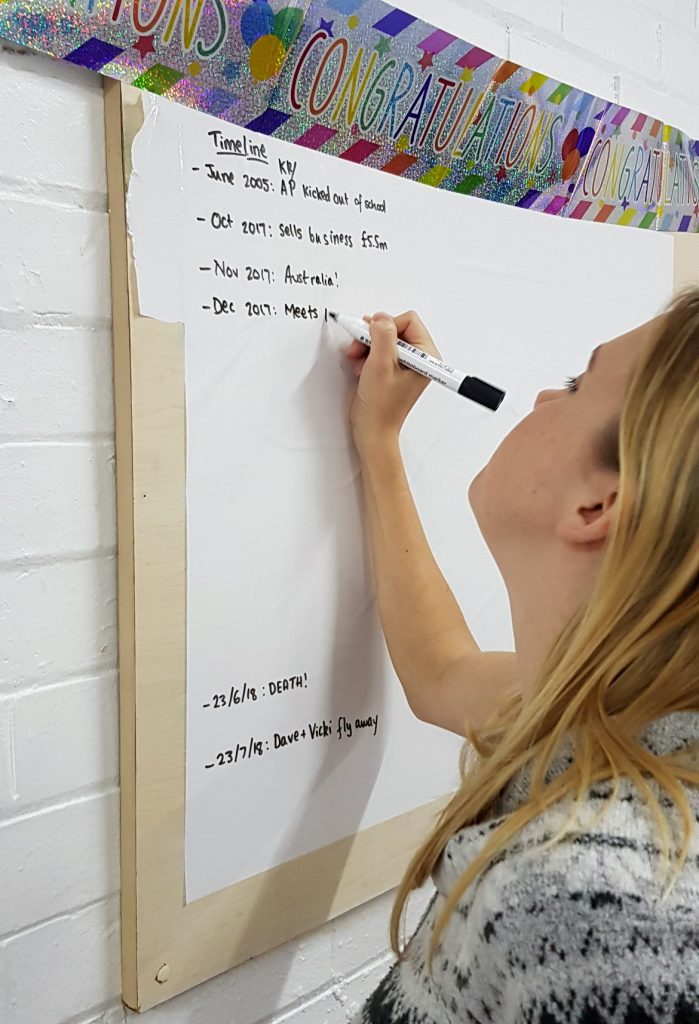 CONGRATULATIONS
CONGRATULAT
Timeline
KB/
- June 2005: AP kicked out of school
- Oct 2017: sells business £5.5m
- Nov 2017: Australia!
- Dec 2017: Meets
whiteboard marker
- 23/6/18: DEATH!
- 23/7/18: Dave + Vicki fly away